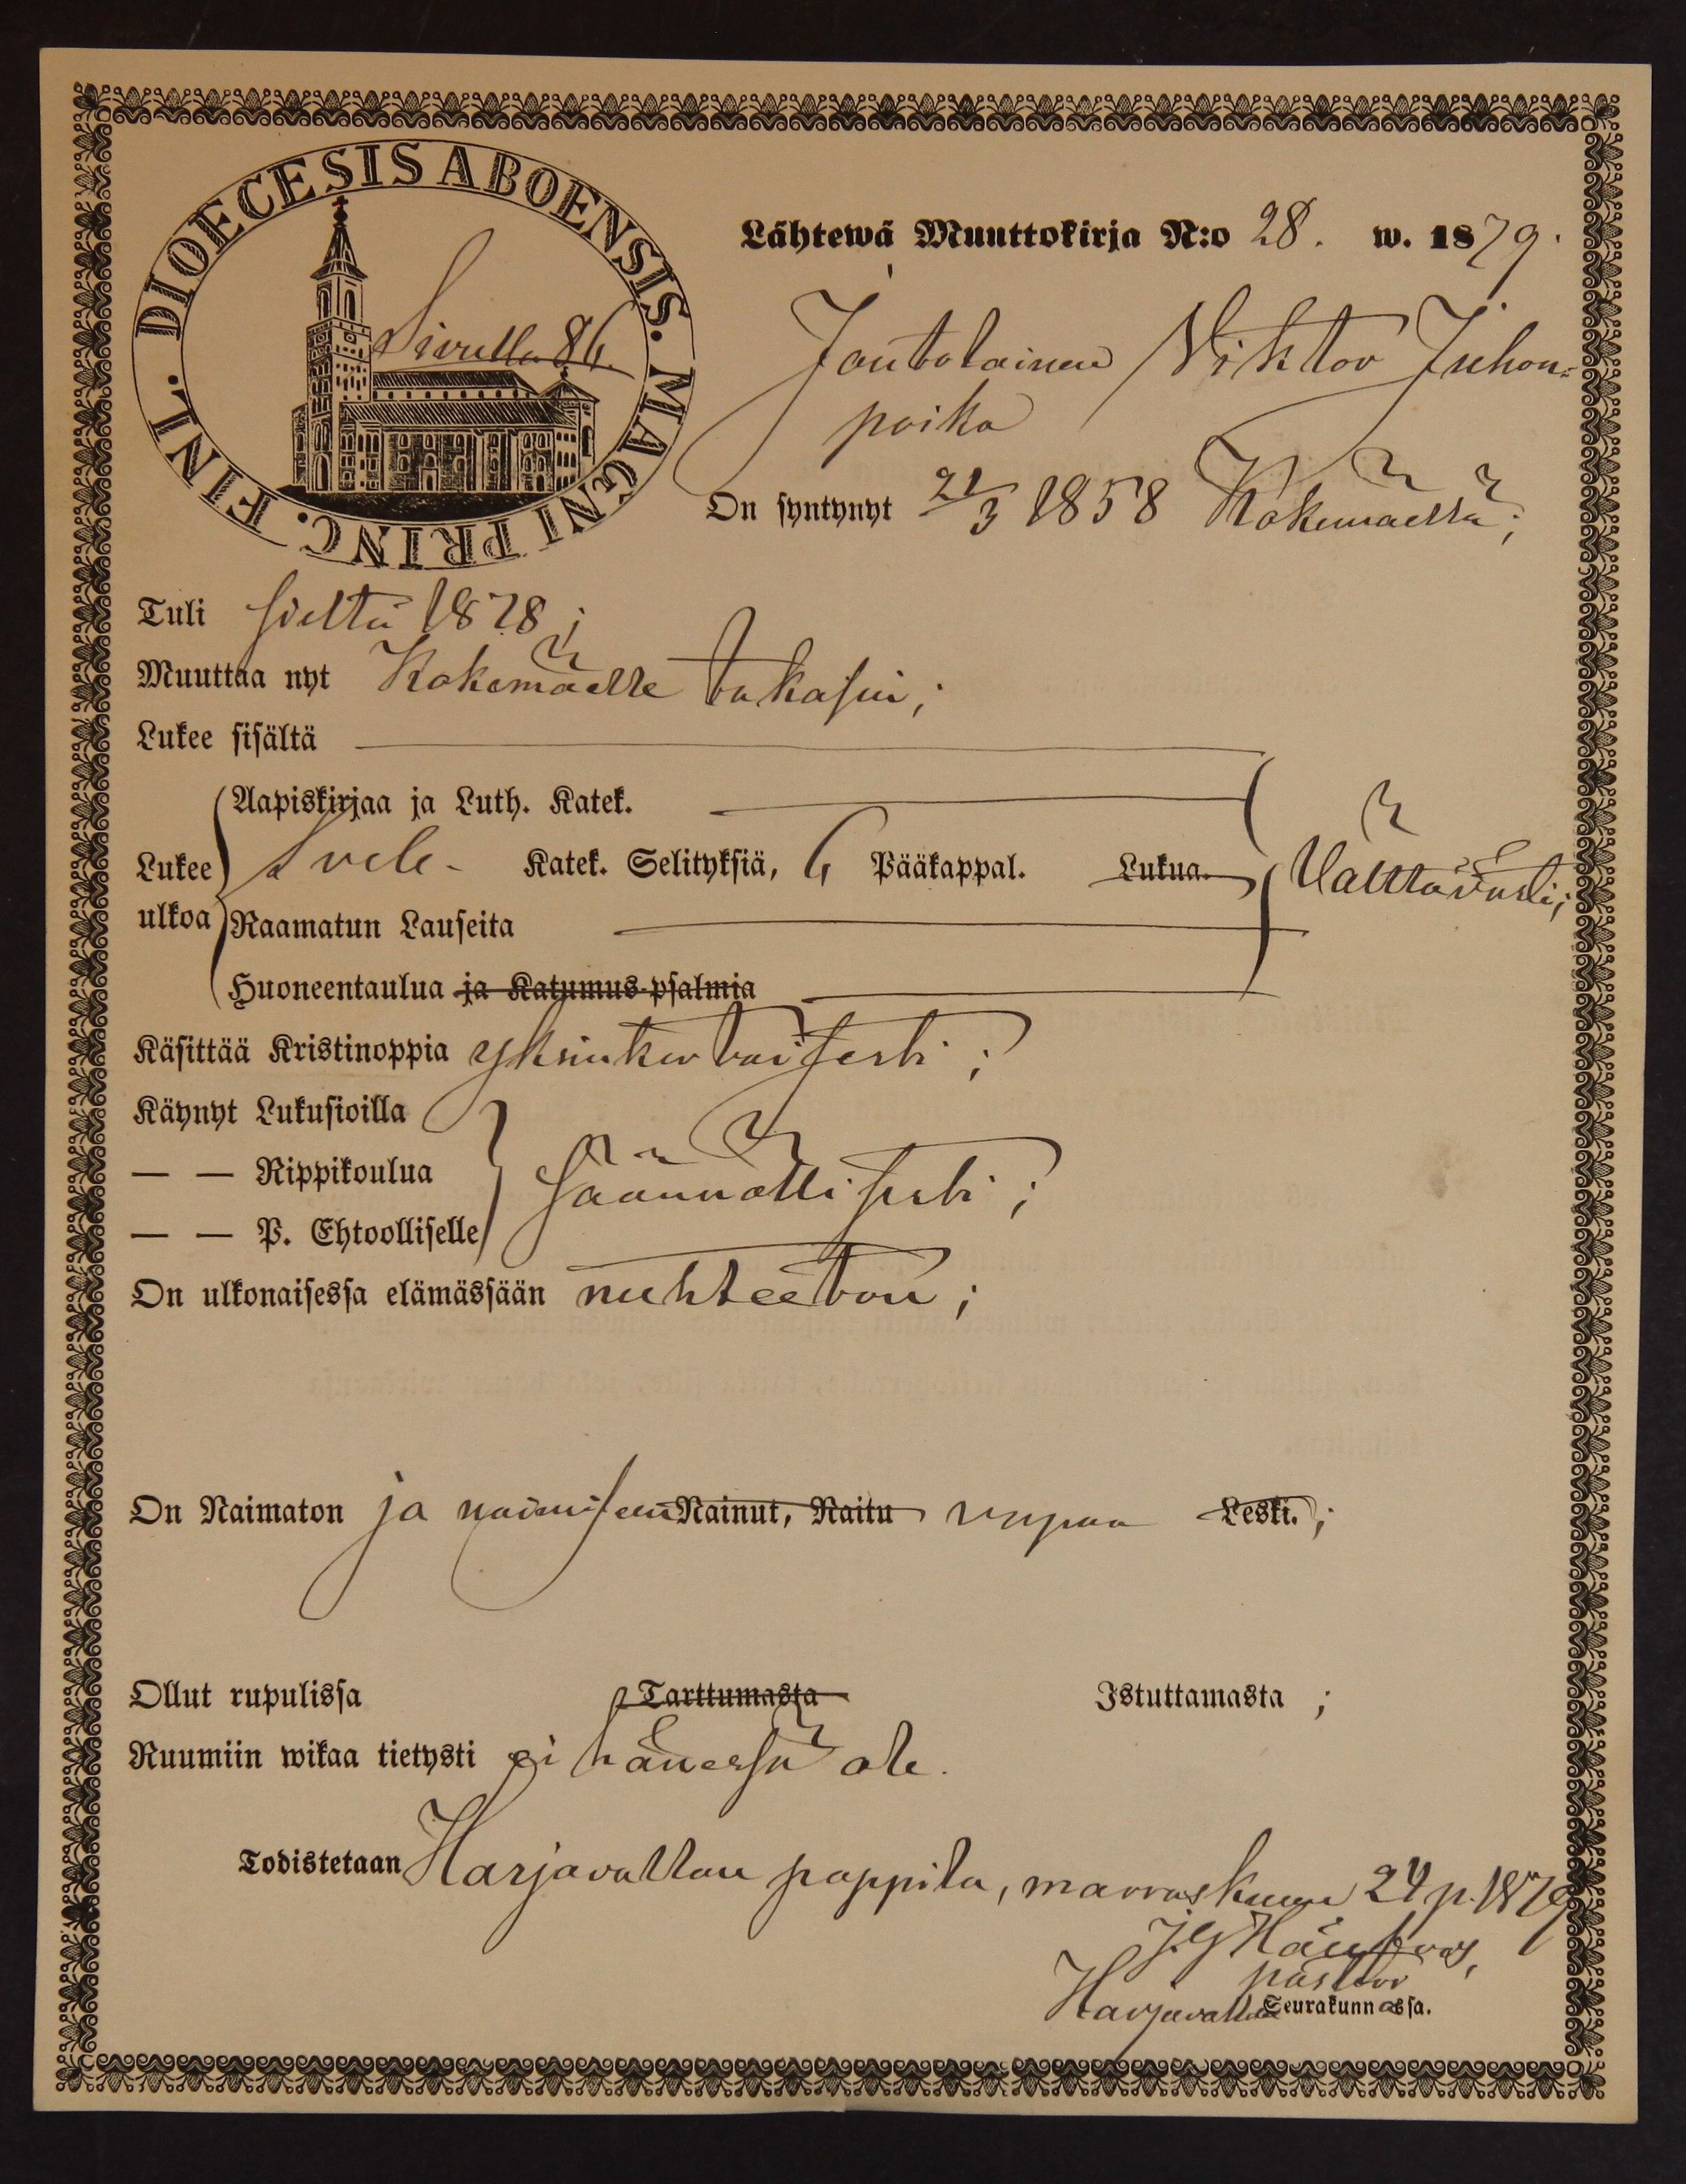 DIOECESIS ABOENSIS. MAGNI PRINC. FINL.
Sivulla 86.
Lähtewä Muuttokirja N:o 28. w. 1879.
Viktor Juhon-
poika
On syntynyt 21/3 1858 Kokemäellä;
Tuli sieltä 1878;
Muuttaa nyt Kokemäelle takasin;
Lukee sisältä
Aapiskirjaa ja Luth. Katek.
Lukee Sveb. Katek. Selityksiä, 6 Pääkappal. Lukua. Välttävästi;
ulkoa Raamatun Lauseita
Huoneentaulua ja Katumus-psalmia
Käsittää Kristinoppia yksinkertaisesti;
Käynyt Lukusioilla
— — Rippikoulua säännöllisesti;
— — P. Ehtoolliselle
On ulkonaisessa elämässään nuhteeton;
On Naimaton ja naimiseen Nainut, Naitu vapaa Leski.;
Ollut rupulissa Tarttumasta Istuttamasta ;
Ruumiin wikaa tietysti ei hänessä ole.
Todistetaan Harjavallan pappila, marraskuun 24 p. 1879
pastor
Harjavallan Seurakunnassa.